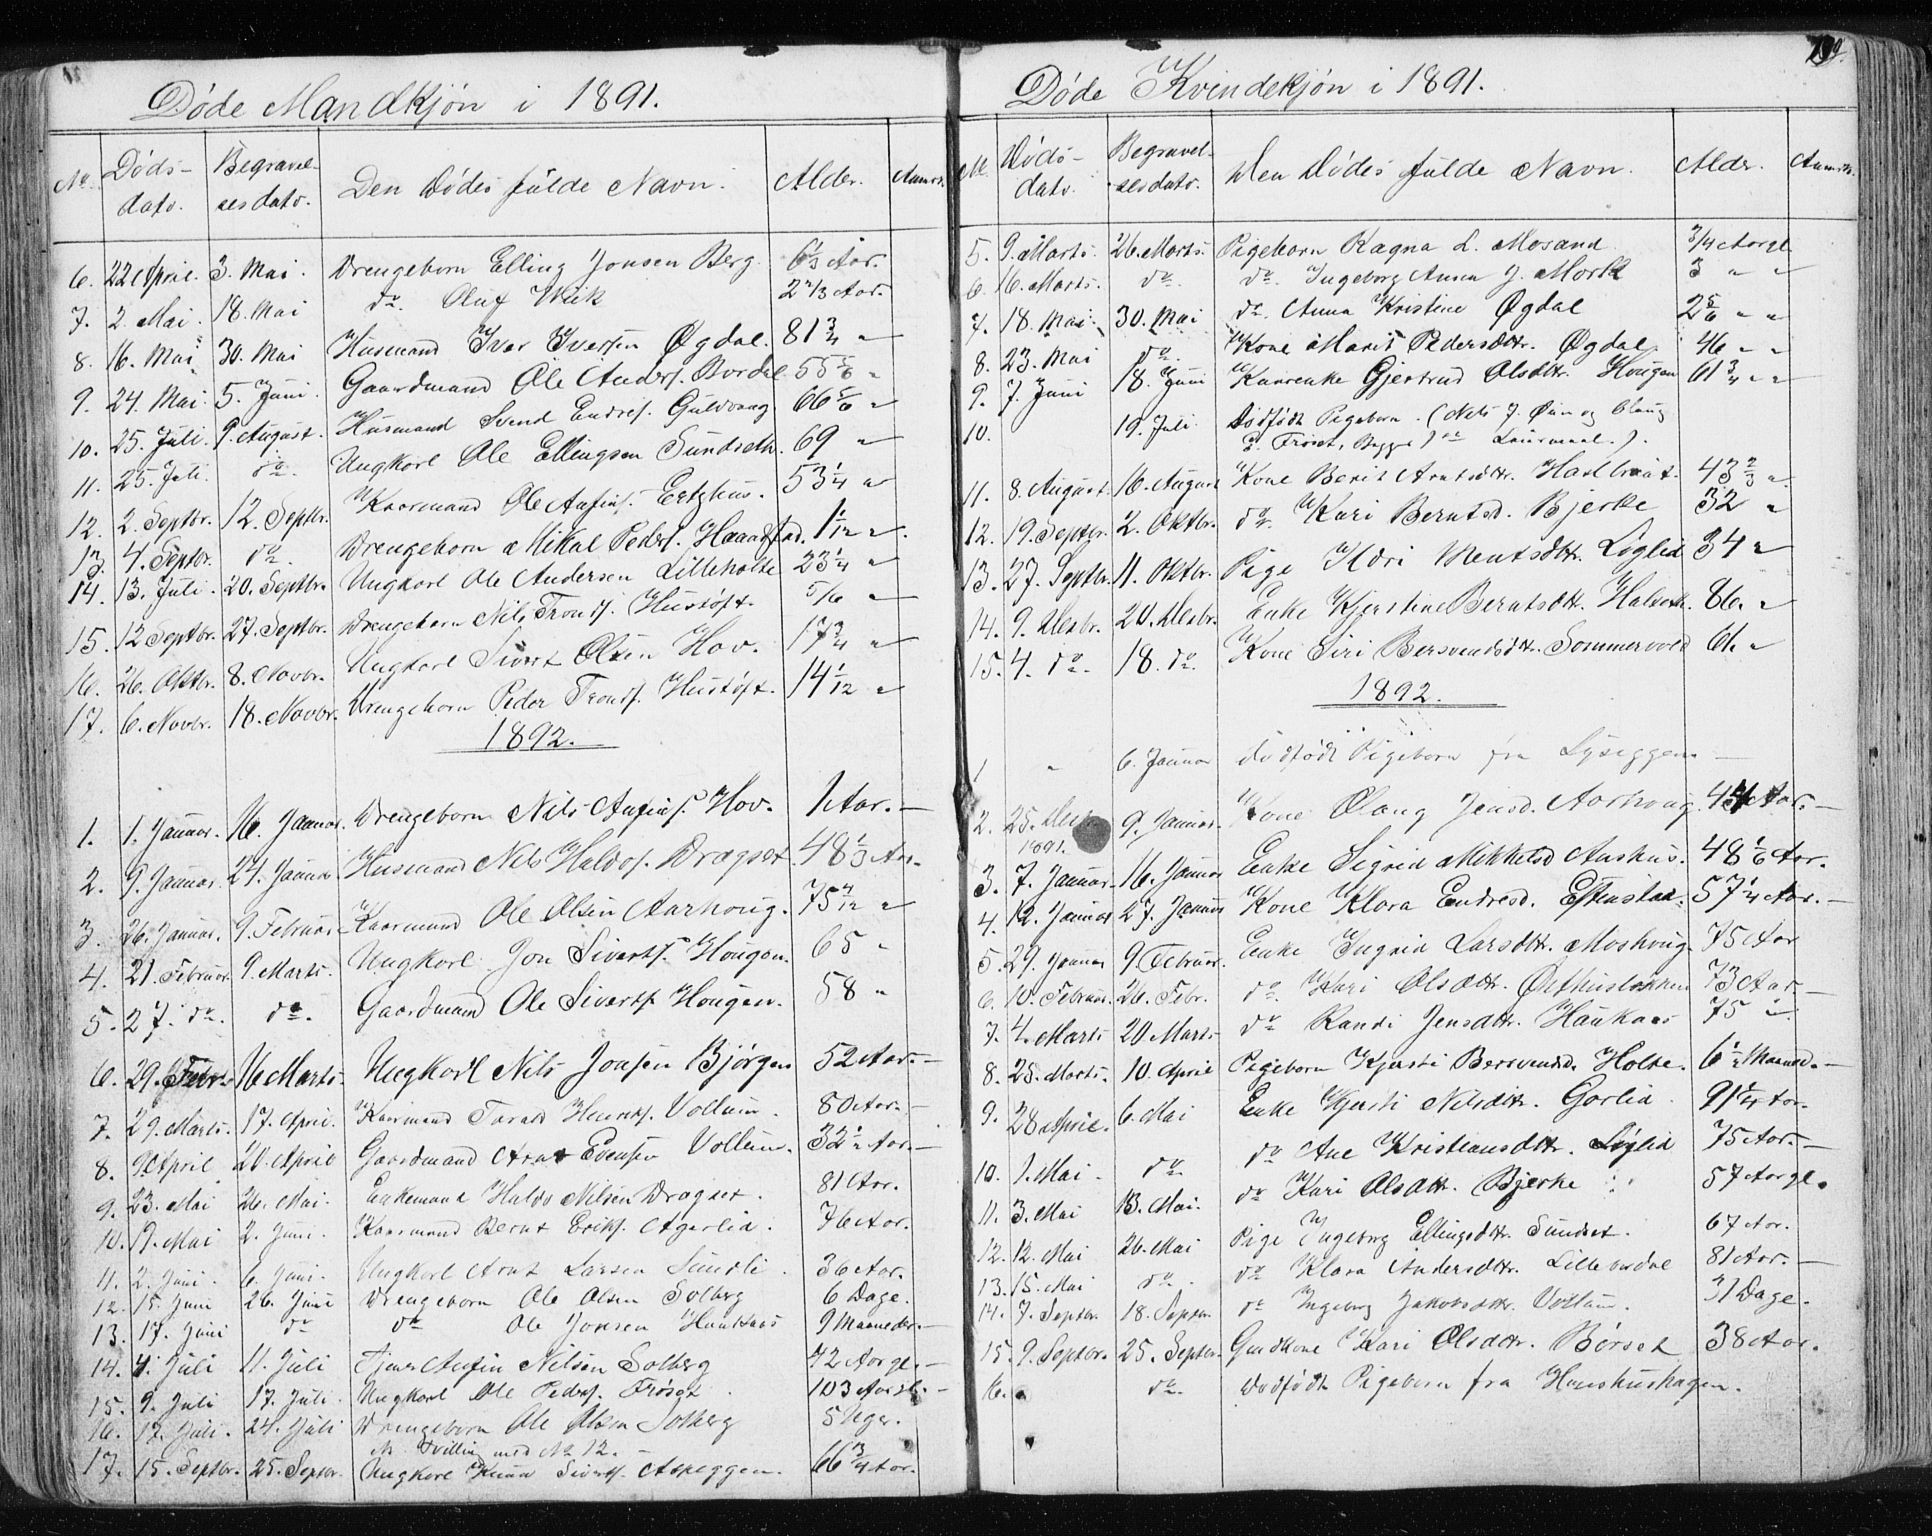 Døde Mandkjøn i 1891.
No. Døds-dato. Begravelsesdato. Den Dødes fulde Navn. Alder. Anmrk.
6. 22 April. 3. Mai. Drengebarn Elling Jonsen Berg. 6 1/3 Aar.
7. 2. Mai. 18. Mai do. Oluf Wiik 2 2/3 Aar.
8. 16. Mai 30. Mai Husmand Ivar Iversen Øgdal. 81 3/4 "
9. 24. Mai. 5. Juni. Gaardmand Ole Anders. Bordal 55 5/6 "
10. 25. Juli. 9. August. Husmand Svend Endres. Guldvaag 66 5/6 "
11. 25. Juli. do. Ungkarl Ole Ellingsen Sundseth. 69 "
12. 2. Septbr. 12. Septbr. Kaarmand Ole Anfins. Eggehus. 53 1/4 "
13. 4. Septbr. do. Drengebarn Mikal Peders. Haardstad. 1 1/12 "
14. 13. Juli. 20. Septbr. Ungkarl Ole Andersen Lilleholte 23 1/4 "
15. 12 Septbr. 27. Septbr. Drengebarn Nils Tronds. Hustøft. 5/6 "
16. 26. Oktbr. 8. Novbr. Ungkarl Sivert Olsen Hov. 17 3/4 "
17. 6. Novbr. 18. Novbr. Drengebarn Peder Tronds. Hustøft. 14 1/12 "
1892.
1. 1. Januar. 16. Januar. Drengebarn Nils Anfins. Hov. 1 Aar.
2. 9. Januar. 24. Januar Husmand Nils Haldos. Dragset. 48 1/3 Aar.
3. 26. Januar. 9. Februar. Kaarmand Ole Olsen Aarhoug. 75 4/12 "
4. 21. Februar. 9. Marts. Ungkarl Jon Siverts. Hougen. 65 "
5. 27. do. do. Gaardmand Ole Siverts. Hougen. 58 "
6. 29. Febr. 16 Marts. Ungkarl Nils Jonsen Bjørgen 52 Aar.
7. 29. Marts. 17. April. Kaarmand Henriks. Vollum. 80 Aar.
8. 9 April 20. April Gaardmand Arnt Evensen Vollum. 32 1/2 Aar.
9. 23. Mai 26. Mai. Enkemand Haldo Nilsen Dragset. 81 Aar.
10. 19. Mai 2. Juni. Kaarmand Bernt Eriks. Agerlia. 76 Aar.
11. 2. Juni. 6. Juni. Ungkarl Arnt Larsen Sundli. 36 Aar.
12. 15. Juni 26. Juni Drengebarn Ole Olsen Solberg 6 Dage.
13. 17. Juni do do Ole Jonsen Haukaas 9 Maaneder.
14. 4. Juli 11. Juli Tjener Anfin Nilsen Solberg 42 Aar gl.
15. 9. Juli 17. Juli. Ungkarl Ole Peders. Frøset. 103 Aar gl.
16. 17. Juli. 24. Juli Drengebarn Ole Olsen Solberg 5 Uger.
Tvilling med No 12.
17. 15. Septbr. 25. Septbr. Ungkarl Knud Siverts. Aspeggen. 66 3/4 Aar.
Døde Kvindekjøn i 1891.
No Døds-dato. Begravelsesdato. Den Dødes fulde Navn. Alder. Anmrk.
5. 9. Marts. 26. Marts. Pigebarn Ragna L. Mosand 3/4 Aar gl
6. 16. Marts. do. do. Ingeborg Anna J. Mork 3 " "
7. 18. Mai. 30. Mai do. Anna Kristine Øgdal 2 5/6 " "
8. 23. Mai do. Kone Marit Pedersdtr. Øgdal. 46 " "
9. 7. Juni 18. Juni Kaarenke Gjertrud Olsdtr. Hougen 61 3/4 " "
10. 19. Juli. Dødfødt Pigebarn. (Nels J. Øien og Olaug
P. Frøset, Begge Laurmaal.).
11. 8. August. 16. August Kone Berit Arntsdtr. Haltbraat. 43 2/3 "
12. 19. Septbr. 2. Oktbr. do. Kari Berntsd. Bjerke 32 "
13. 27. Septbr. 11. Oktbr. Pige Kari Mentsdtr. Løglid 34 "
14. 9. Decbr. 20. Decbr. Enke Kjerstine Berntsdtr. Halseth. 86. "
15. 4. do. 18. do. Kone Siri Bersvendsdtr. Sommervold 61. "
1892.
1 " 6. Januar dødfødt Pigebarn fra Lyseggen
2. 25. Decbr 1891. 9. Januar. Kone Olaug Jensd. Aarhoug. Aar.
3. 7. Januar. 16. Januar Enke Sigrid Mikkelsd. Aushus. 48 1/6 Aar.
4. 12. Januar 27. Januar Kone Klara Endresd. Estenstad. 57 1/4 Aar.
5. 29. Januar 9. Februar. Enke Ingrid Larsdtr. Moshoug. 75 Aar
6. 10. Februar. 26. Febr. do. Kari Olsdtr. Ørthusløkken 73 Aar.
7. 4. Marts 20. Marts do Randi Jensdtr. Haukaas 75 "
8. 25. Marts. 10. April Pigebarn Kjersti Bersvendsd. Holte. 6 1/2 Maaned.
9. 28 April. 6. Mai Enke Kjersti Nilsdtr. Gorlid. 91 1/4 Aar.
10. 1. Mai. do. do Ane Kristiansdtr. Løglid 75 Aar.
11. 3. Mai 13. Mai. do Kari Olsdtr. Bjerke 57 Aar gl.
12. 12. Mai 26. Mai Pige Ingeborg Ellingsdtr. Sundset. 67 Aar.
13. 15. Mai do. do Klara Andersdtr. Lillebordal 81 Aar.
14. 7. Septbr. 18. Septbr. do Ingeborg Jakobsdtr. Vollum. 31 Dage.
15. 9. Septbr. 25. Septbr. Gaardkone Kari Olsdtr. Børset 38 Aar.
16. do. Dødfødt Pigebarn fra Houshushagen.